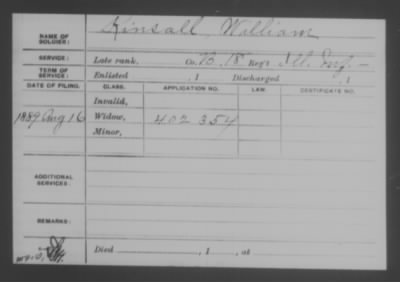 NAME OF SOLDIER: Kinsall, William
SERVICE: Late rank, Co. B, 18 Reg't Ill. Inf.
TERM OF SERVICE: Enlisted , 1 Discharged , 1
DATE OF FILING. CLASS. APPLICATION NO. LAW. CERTIFICATE NO.
Invalid,
1889 Aug 16 Widow, 402 354
Minor,
ADDITIONAL SERVICES:
REMARKS:
Died , 1 , at